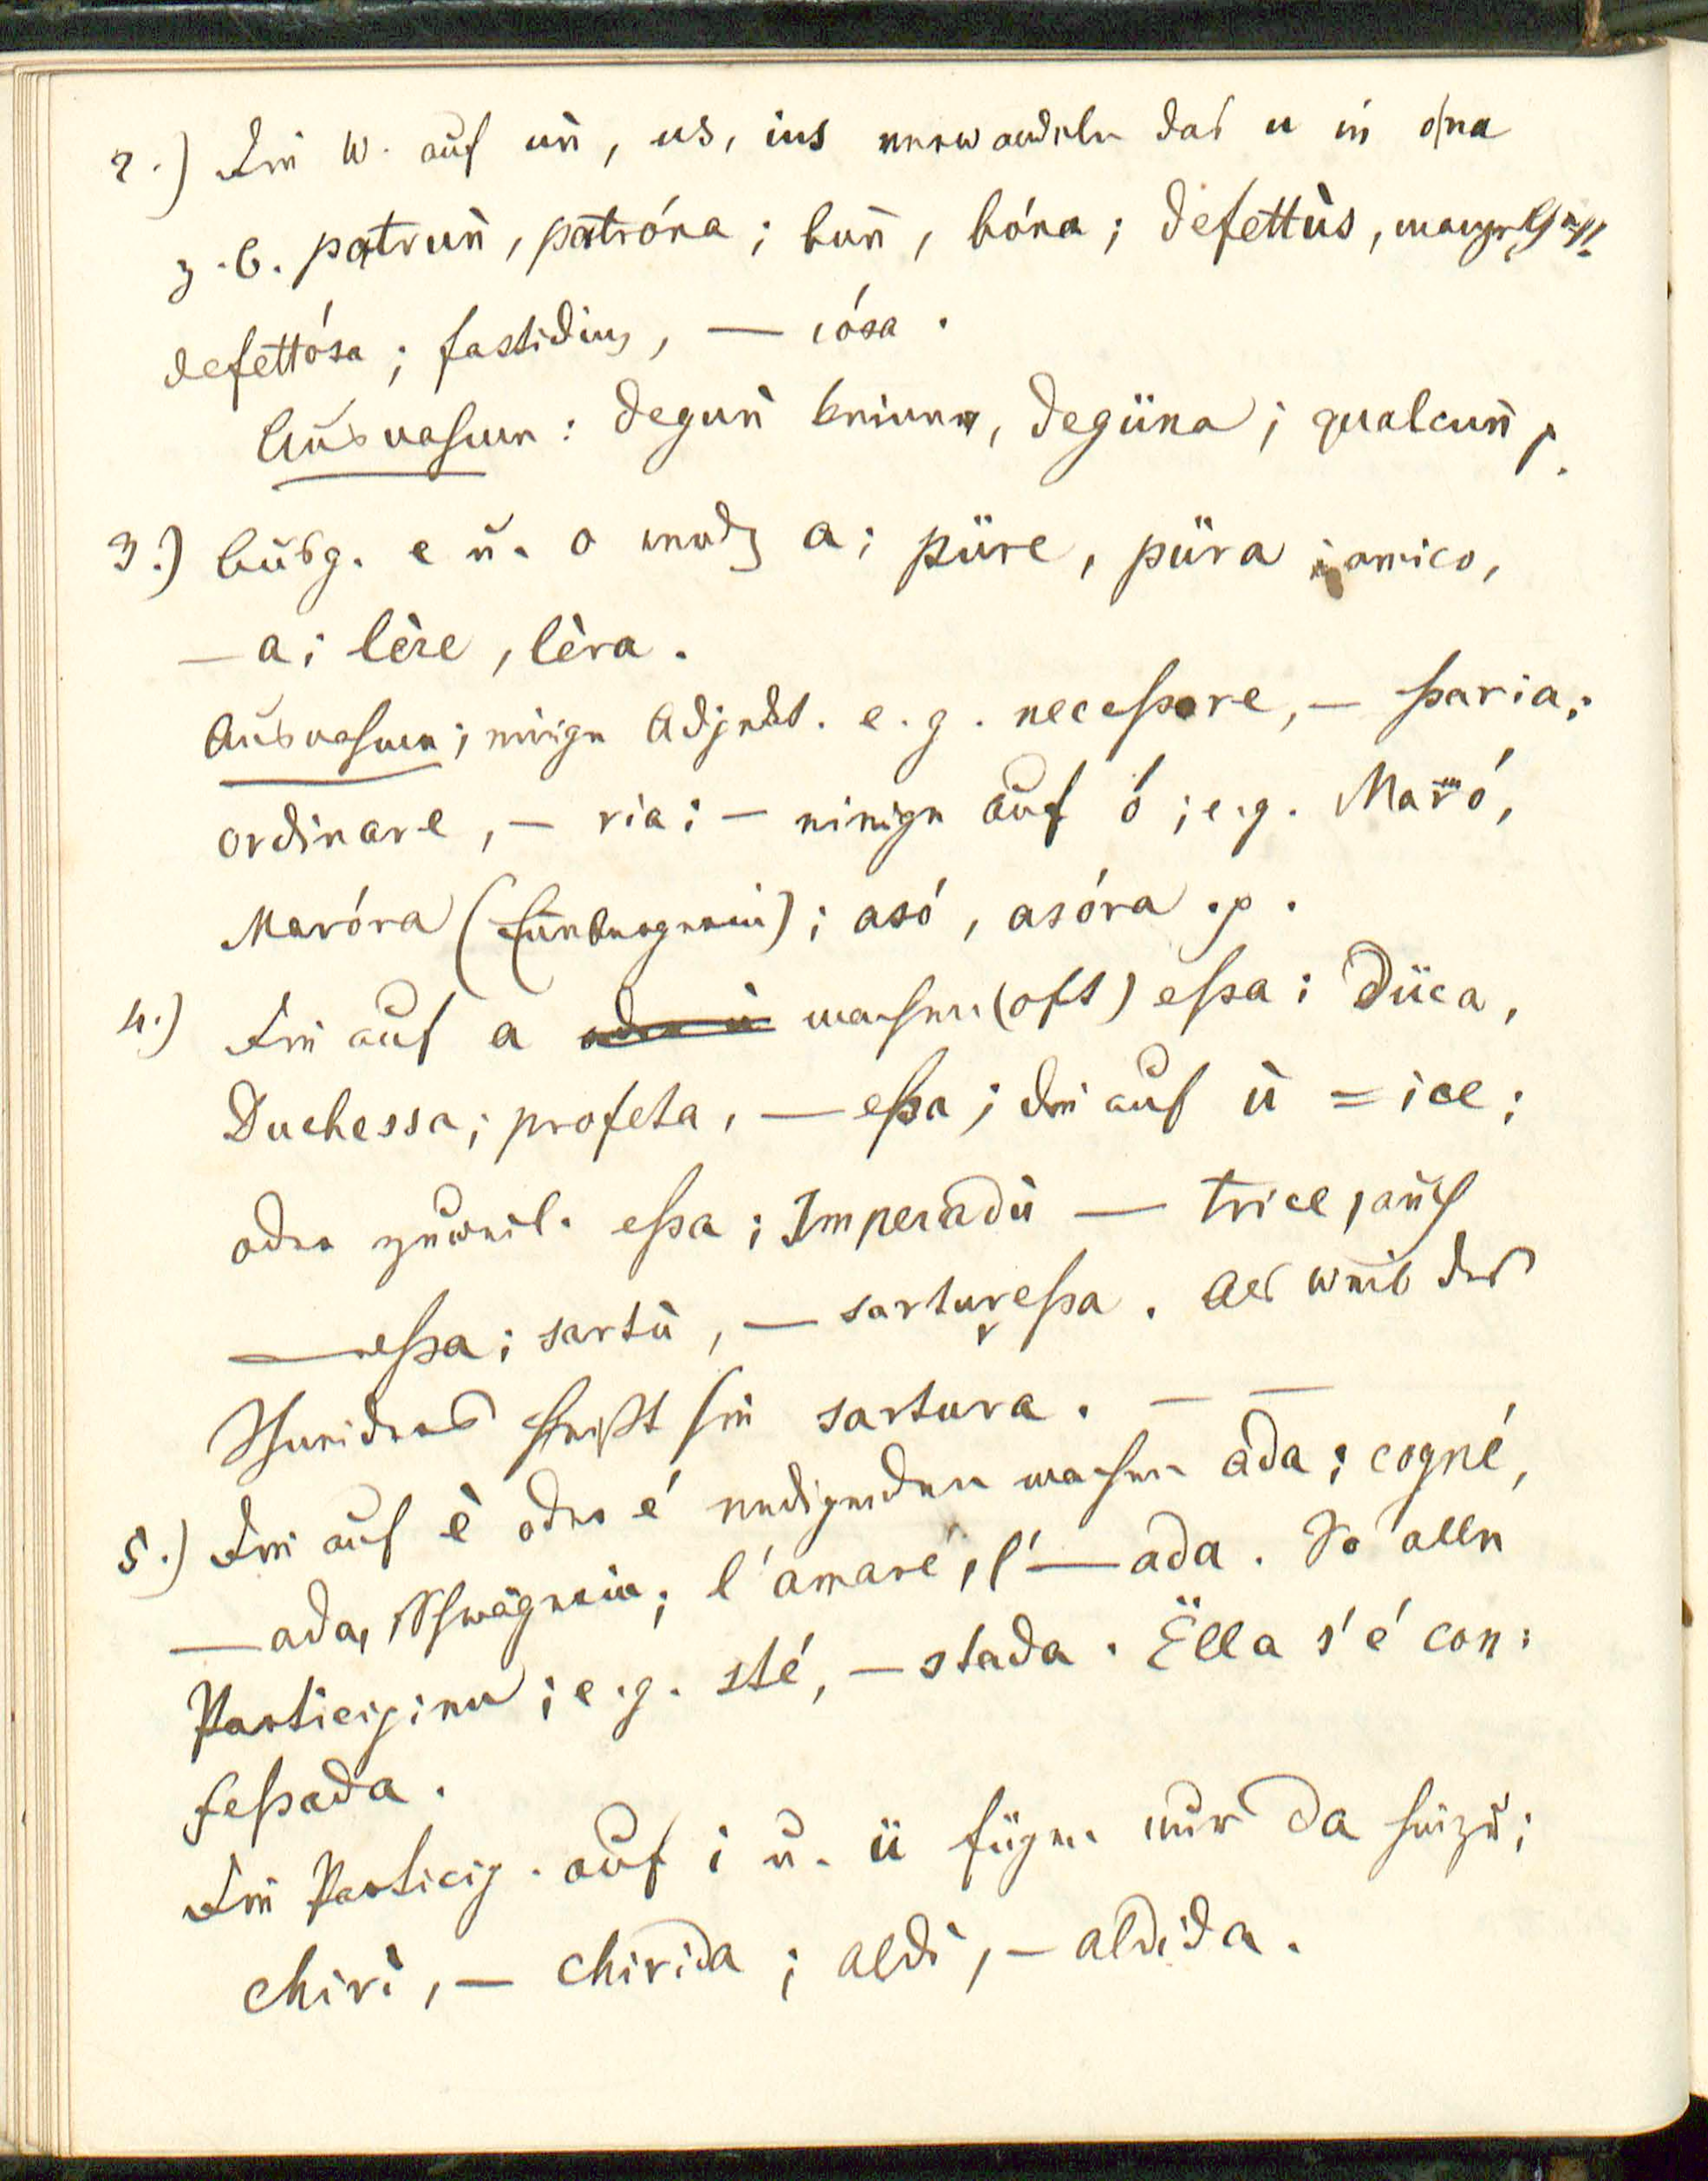 2.) Die W. auf un̄, us, ius verwandeln das u in ó/na
z. B. patrun̄, patróna; bun̄, bóna; defettùs, mangelhaft
defettósa; fastidius, — iósa.
Ausnahmen: degun̄ keiner, degüna; qualcun̄ p.
3.) Ausg. e u. o werdz a; püre, püra; amico,
— a; lère, lèra.
Ausnahmen; einige Adject. e. g. necessare, — ssaria;
ordinare, — ria; — einige auf ó; e. g. Maró,
Maróra (Ennebergerin); asó, asóra p.
4.) Die auf a oder ù machen (oft) essa; Düca,
Duchessa; profeta, — essa; die auf ù = ice;
oder zuweil. essa; Imperadù — trice, auch
— essa; sartù, — sarturessa. Als Weib des
Schneiders heißt sie sartura. — —
5.) Die auf è oder é endigenden machen ada; cogné,
— ada, Schwägerin; l'amaré, l'— ada. So alle
Participien; e. g. sté, — stada. Ëlla s'é con:
fessada.
Die Particip. auf i u. ü fügen nur da hinzu;
chirì, — chirida; aldì, — aldida.